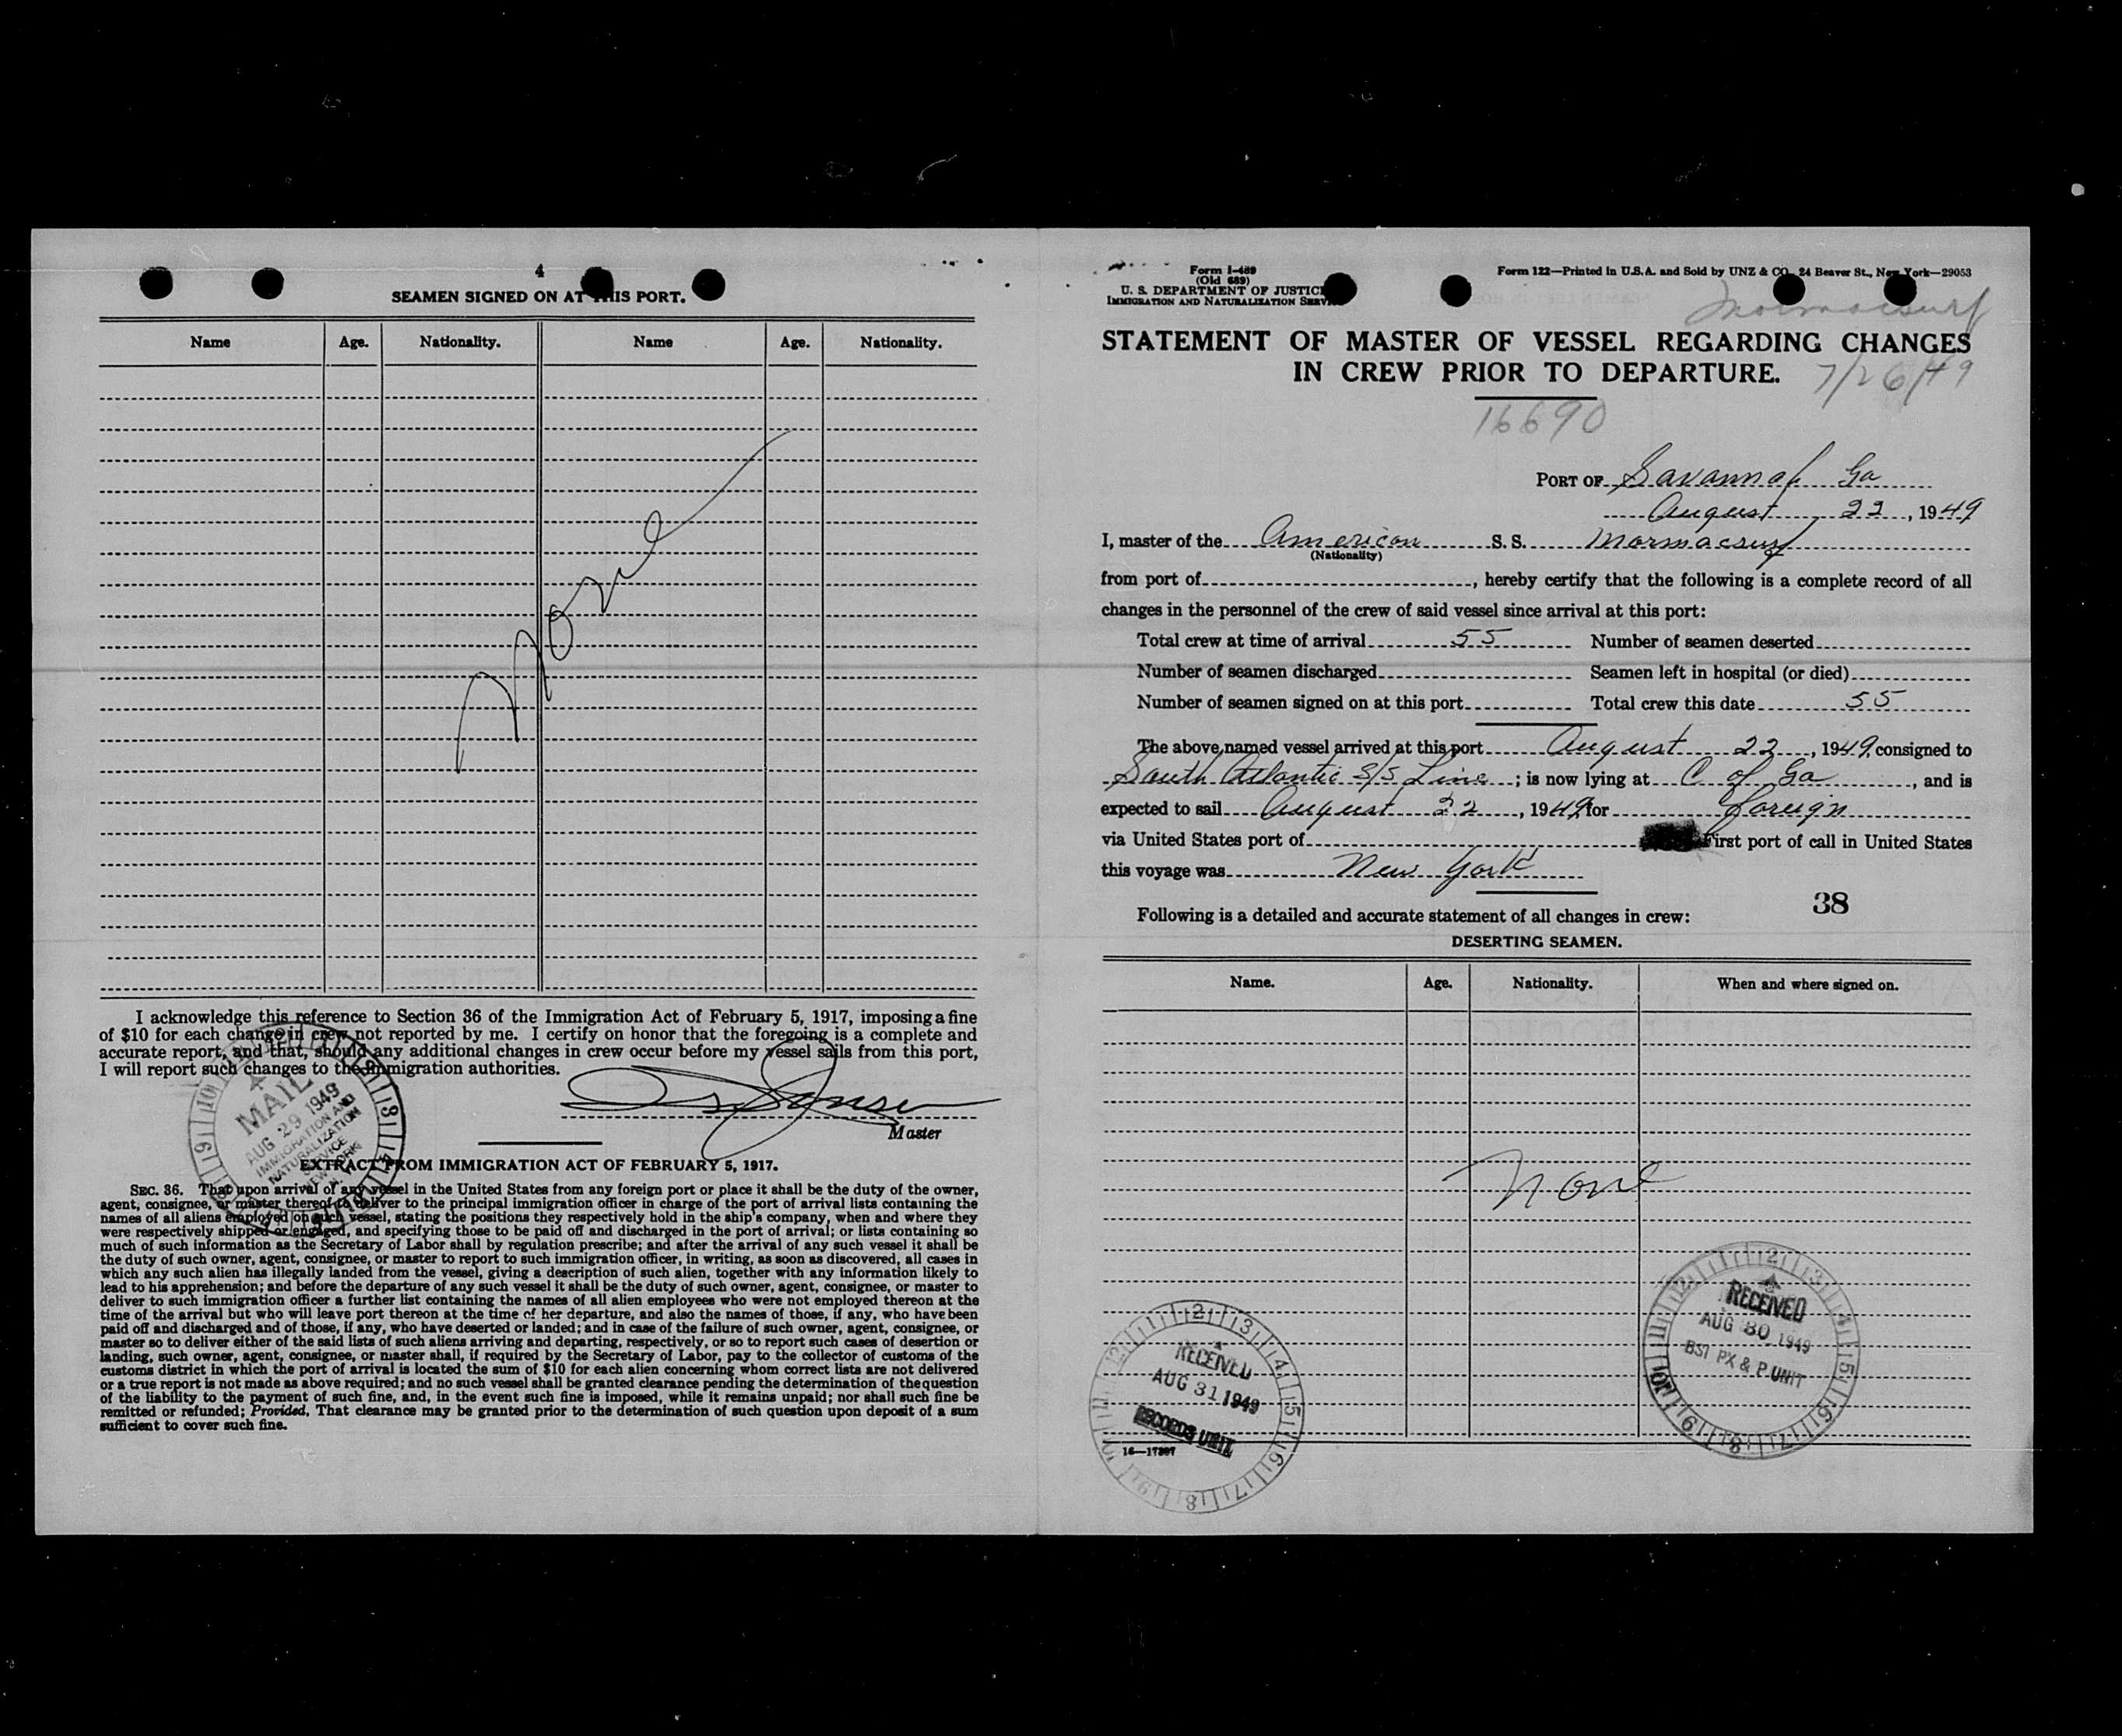 4
SEAMEN SIGNED ON AT THIS PORT.
Name Age. Nationality. Name Age. Nationality.
None
I acknowledge this reference to Section 36 of the Immigration Act of February 5, 1917, imposing a fine
of $10 for each change in crew not reported by me. I certify on honor that the foregoing is a complete and
accurate report, and that, should any additional changes in crew occur before my vessel sails from this port,
I will report such changes to the immigration authorities.
Master
MAIL
AUG 29 1949
IMMIGRATION AND
NATURALIZATION
SERVICE
EXTRACT FROM IMMIGRATION ACT OF FEBRUARY 5, 1917.
SEC. 36. That upon arrival of any vessel in the United States from any foreign port or place it shall be the duty of the owner,
agent, consignee, or master thereof to deliver to the principal immigration officer in charge of the port of arrival lists containing the
names of all aliens employed on such vessel, stating the positions they respectively hold in the ship's company, when and where they
were respectively shipped or engaged, and specifying those to be paid off and discharged in the port of arrival; or lists containing so
much of such information as the Secretary of Labor shall by regulation prescribe; and after the arrival of any such vessel it shall be
the duty of such owner, agent, consignee, or master to report to such immigration officer, in writing, as soon as discovered, all cases in
which any such alien has illegally landed from the vessel, giving a description of such alien, together with any information likely to
lead to his apprehension; and before the departure of any such vessel it shall be the duty of such owner, agent, consignee, or master to
deliver to such immigration officer a further list containing the names of all alien employees who were not employed thereon at the
time of the arrival but who will leave port thereon at the time of her departure, and also the names of those, if any, who have been
paid off and discharged and of those, if any, who have deserted or landed; and in case of the failure of such owner, agent, consignee, or
master so to deliver either of the said lists of such aliens arriving and departing, respectively, or so to report such cases of desertion or
landing, such owner, agent, consignee, or master shall, if required by the Secretary of Labor, pay to the collector of customs of the
customs district in which the port of arrival is located the sum of $10 for each alien concerning whom correct lists are not delivered
or a true report is not made as above required; and no such vessel shall be granted clearance pending the determination of the question
of the liability to the payment of such fine, and, in the event such fine is imposed, while it remains unpaid; nor shall such fine be
remitted or refunded; Provided, That clearance may be granted prior to the determination of such question upon deposit of a sum
sufficient to cover such fine.
Form I-489
(Old 689)
U. S. DEPARTMENT OF JUSTICE
IMMIGRATION AND NATURALIZATION SERVICE
Form 122—Printed in U.S.A. and Sold by UNZ & CO., 24 Beaver St., New York—29053
Mormacsurf
STATEMENT OF MASTER OF VESSEL REGARDING CHANGES
IN CREW PRIOR TO DEPARTURE.
7/26/49
16690
PORT OF Savannah Ga
August 22, 1949
I, master of the American S. S. Mormacsurf
(Nationality)
from port of , hereby certify that the following is a complete record of all
changes in the personnel of the crew of said vessel since arrival at this port:
Total crew at time of arrival 55 Number of seamen deserted
Number of seamen discharged Seamen left in hospital (or died)
Number of seamen signed on at this port Total crew this date 55
The above named vessel arrived at this port August 22, 1949, consigned to
South Atlantic S/S Line; is now lying at C of Ga, and is
expected to sail August 22, 1949 for foreign
via United States port of First port of call in United States
this voyage was New York
38
Following is a detailed and accurate statement of all changes in crew:
DESERTING SEAMEN.
Name. Age. Nationality. When and where signed on.
None
RECEIVED
AUG 30 1949
BSI PX & P UNIT
RECEIVED
AUG 31 1949
RECORDS UNIT
16—17207